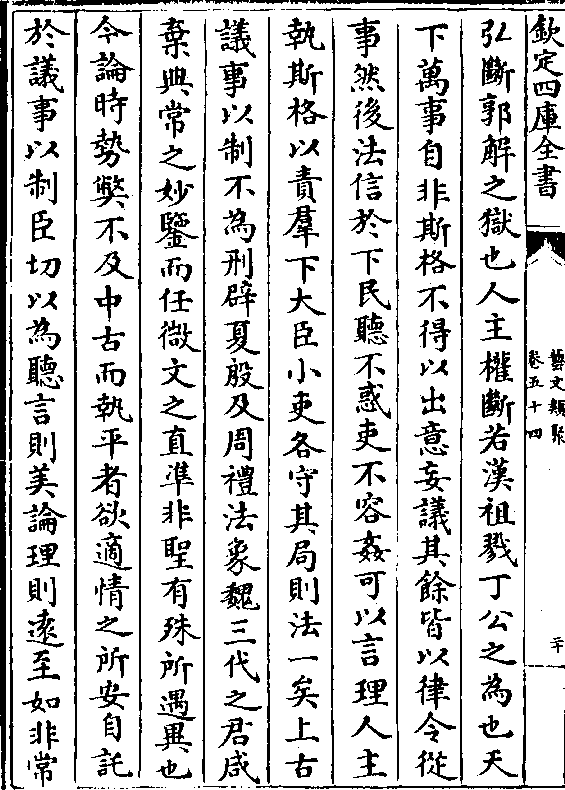 欽定四庫全書
藝文類聚
卷五十四
二十
弘斷郭解之獄也人主權斷若漢祖戮丁公之為也天
下萬事自非斯格不得以出意妄議其餘皆以律令從
事然後法信於下民聽不惑吏不容姦可以言理人主
執斯格以責羣下大臣小吏各守其局則法一矣上古
議事以制不為刑辟夏殷及周禮法象魏三代之君咸
棄典常之妙鑒而任微文之直準非聖有殊所遇異也
今論時勢獘不及中古而執平者欲適情之所安自託
於議事以制臣切以為聽言則美論理則遠至如非常